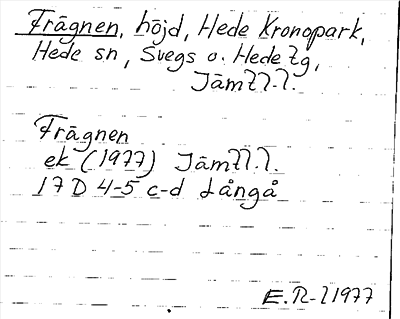 Frägnen, höjd, Hede Kronopark,
Hede sn, Svegs o. Hede tg,
Jämtl. l.
Frägnen
ek (1977) Jämtl. l.
17 D 4-5 c-d Långå
E. R-l 1977